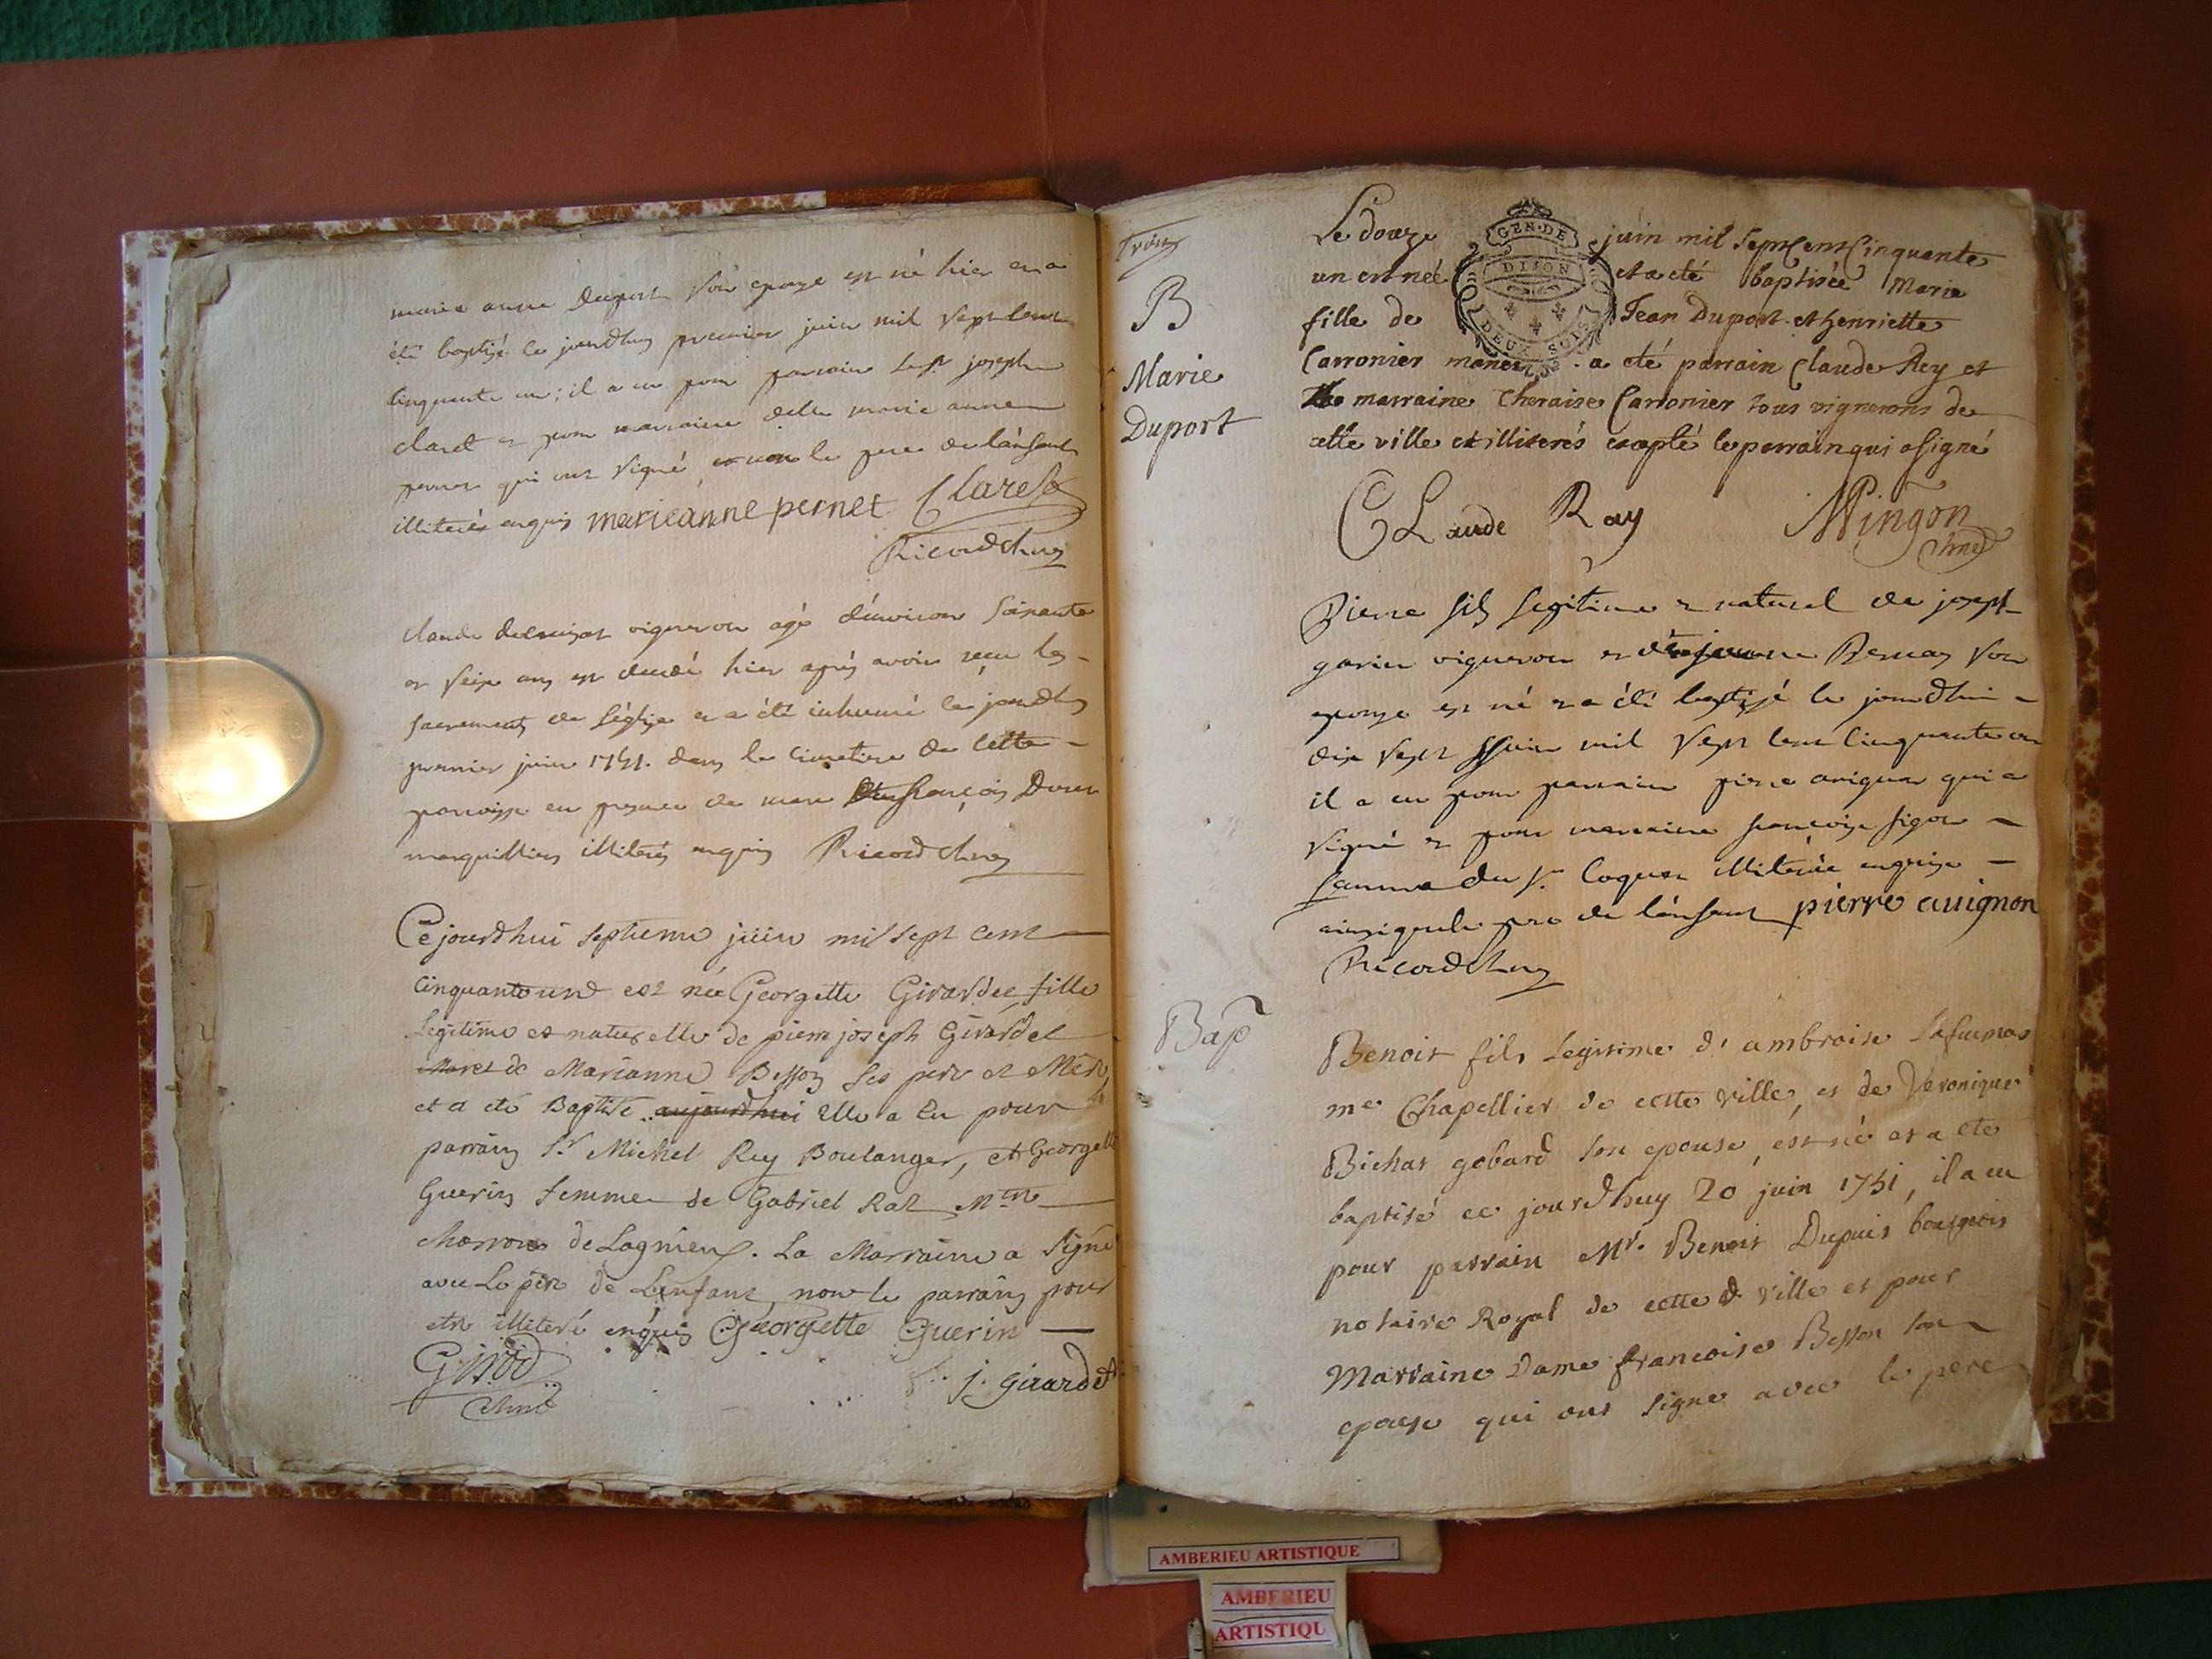 marie anne Duport son epouse est né hier et a
été baptisé ce jourdhuy premier juin mil sept cent
cinquante un; il a eu pour parrain Sr joseph
claret et pour marraine delle marie anne
pernet qui ont signé et non le pere de l'enfant
illiteré enquis marieanne pernet Claret
Ricord chne
claude vigneron agé d'environ soixante
et seize ans est decedé hier aprés avoir reçu les
sacrements de l'église et a été inhumé ce jourdhuy
premier juin 1751. dans le cimetiere de cette
paroisse en presence de marc françois
marguilliers illiterés enquis Ricord chne
Cejourdhui septieme juin mil sept cent
cinquante und est née Georgette Girardet fille
legitime et naturelle de pierre joseph Girardet
et de Marianne Besson ses pere et Mere
et a eté Baptisée aujourdhui Elle a Eu pour
parrain Sr Michel Rey Boulanger, et Georgette
Guerin femme de Gabriel Rat Mtre
charron de Lagnieu. La Marraine a signé
avec Le pere de Lenfant, non le parrain pour
etre illiteré enquis Georgette Guerin
j. Girardet
chne
B
Marie
Duport
Le douze juin mil sept cent Cinquante
un est née et a eté baptisée Marie
fille de Jean Duport et henriette
Carronier mariés a eté parrain Claude Rey et
marraine Theraise Carronier tous vignerons de
cette ville et illiterés excepté le parrain qui a signé
CLaude Ray Mingon
chne
Pierre fils legitime et naturel de joseph
garin vigneron et de jeanne son
epouse est né et a été baptizé ce jourdhui
dix sept juin mil sept cent cinquante un
il a eu pour parrain pierre avignon qui a
signé et pour marraine françoise
femme du Sr Coquet illiterée enquise
ainsi que le pere de l'enfant pierre avignon
Ricord chne
Bap
Benoit fils legitime d'ambroise
me Chapellier de cette ville, et de Veronique
Bichat gobard son epouse, est né et a eté
baptisé ce jourdhuy 20 juin 1751, il a eu
pour parrain Mr. Benoit Dupuis bourgeois
notaire Royal de cette ville et pour
Marraine Dame francoise Besson son
epouse qui ont signe avec le père
GEN·DE
DIJON
DEUX SOLS
AMBERIEU ARTISTIQUE
AMBERIEU
ARTISTIQU